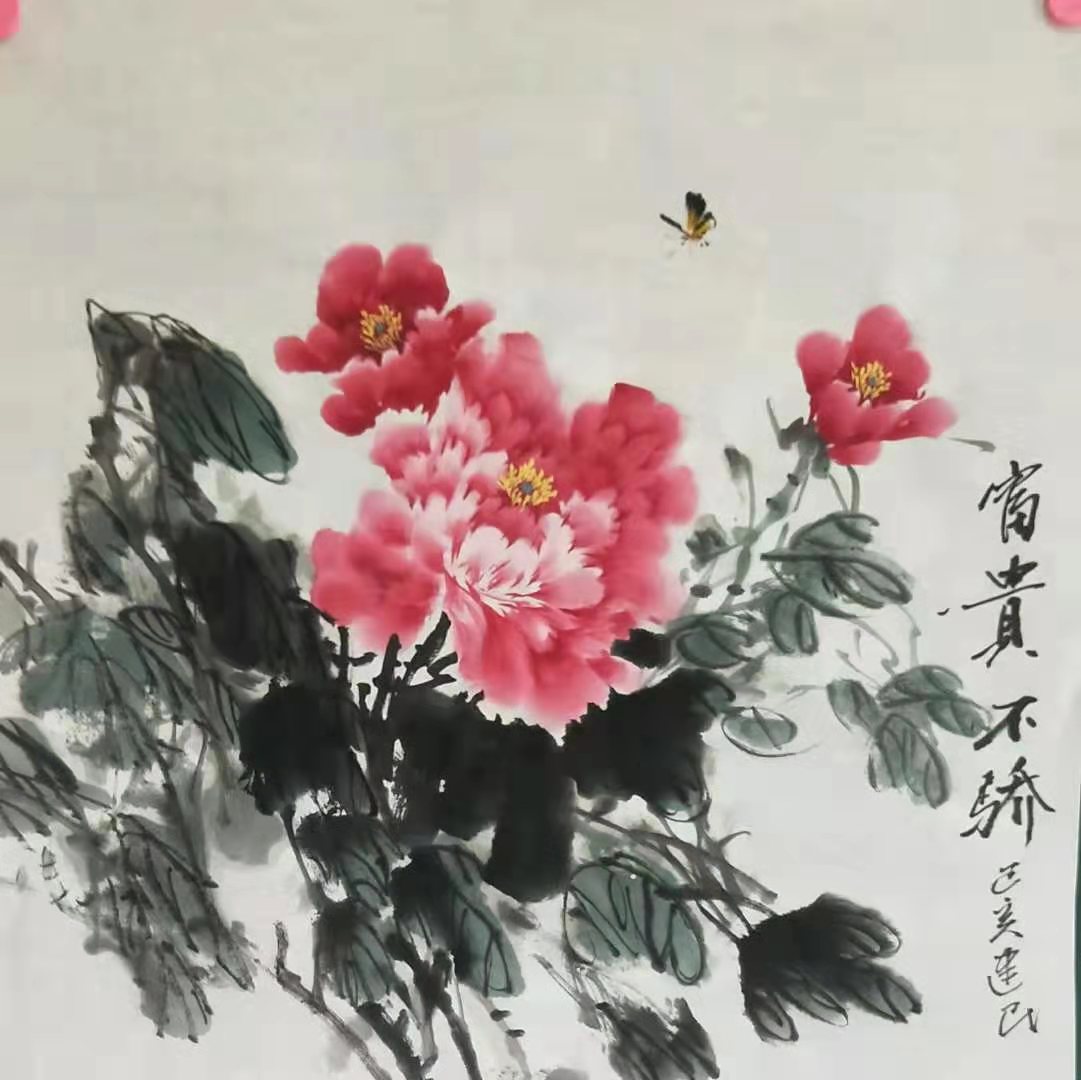 富貴不驕
己亥建民